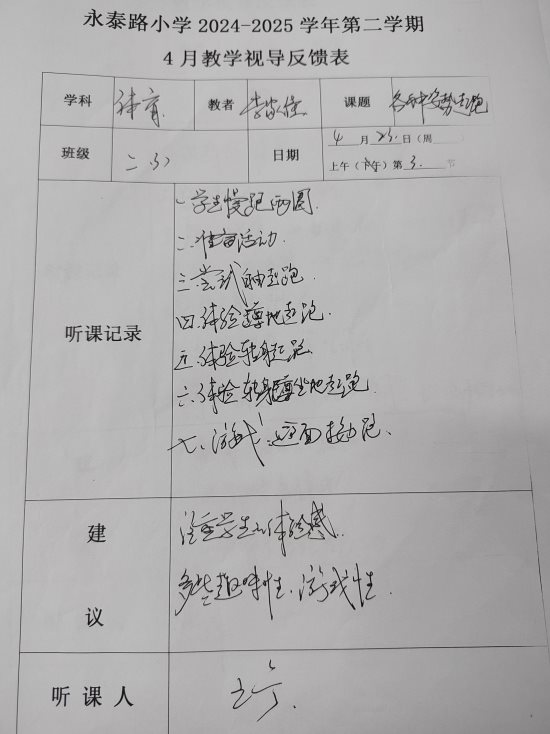 永泰路小学2024-2025学年第二学期
4月教学视导反馈表
学科 体育 教者 李 课题 各种姿势起跑
班级 二 日期 4月23日(周
上午(下午)第3节
听课记录
一.学生慢跑两圈.
二.准备活动.
三.尝试自由起跑.
四.体验蹲地起跑.
五.体验转身起跑.
六.体验转身蹲坐地起跑.
七、游戏:迎面接力跑.
建议
注重学生的体验感.
多些趣味性、游戏性.
听课人